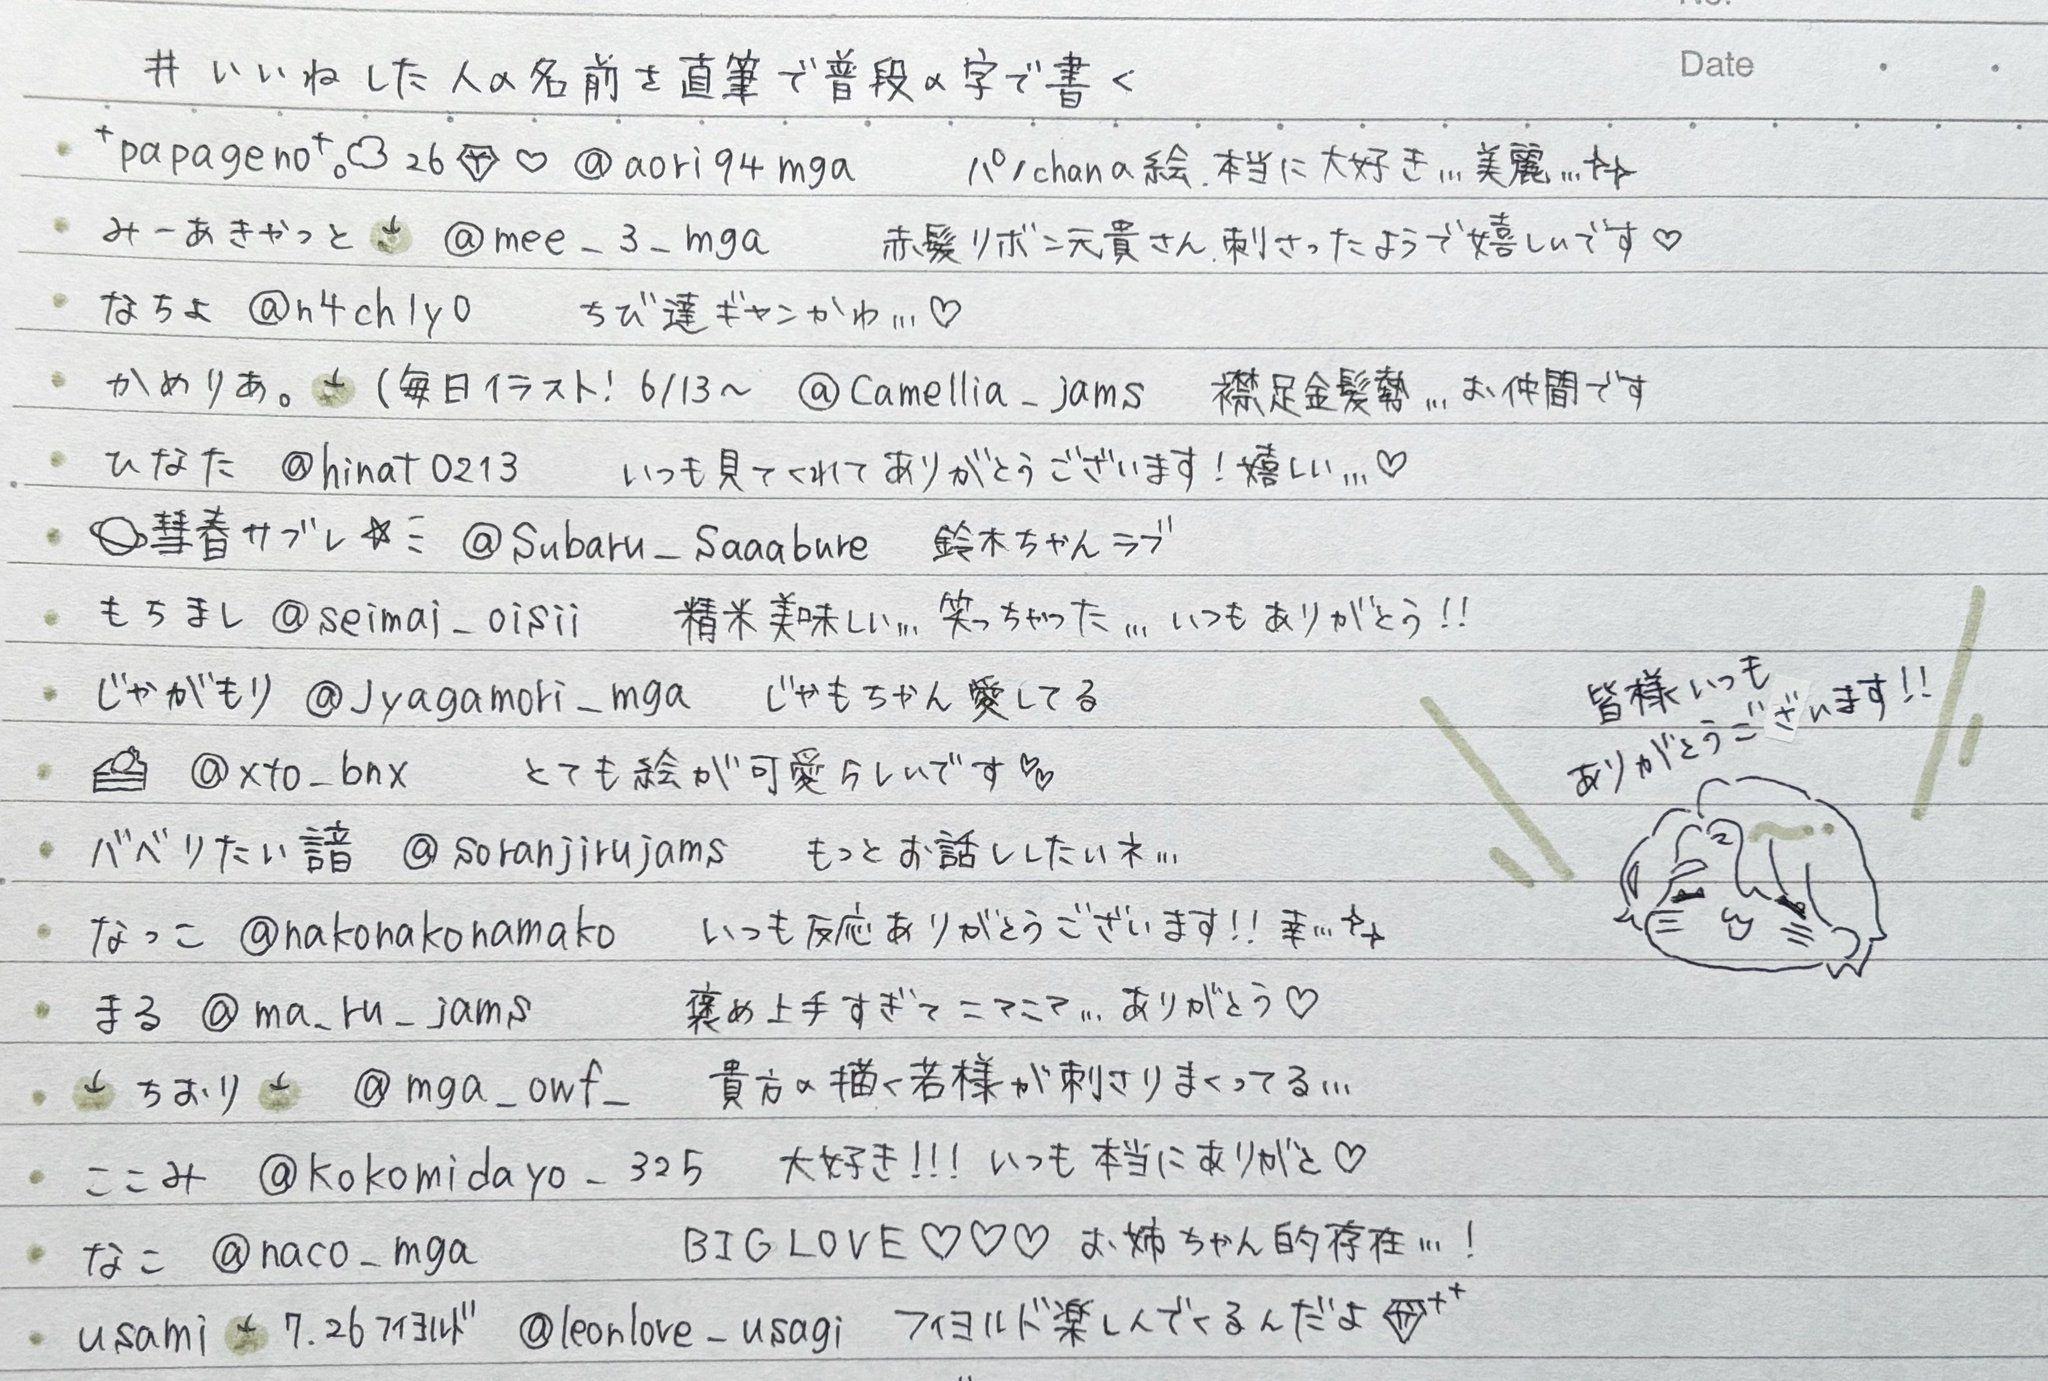 Date
#いいねした人の名前を直筆で普段の字で書く
⁺papageno⁺。☁26💎♡ @aori94mga パノchanの絵、本当に大好き…美麗…✨
みーあきゃっと🍏 @mee_3_mga 赤髪リボン元貴さん、刺さったようで嬉しいです♡
なちよ @n4ch1y0 ちび達ギャンかわ…♡
かめりあ。🍏(毎日イラスト! 6/13〜 @Camellia_jams 襟足金髪勢…お仲間です
ひなた @hinat0213 いつも見てくれてありがとうございます!嬉しい…♡
🪐彗春サブレ☆ミ @Subaru_Saaabure 鈴木ちゃんラブ
もちまし @seimai_oisii 精米美味しい…笑っちゃった…いつもありがとう!!
じゃがもり @Jyagamori_mga じゃもちゃん愛してる
🍰 @xto_bnx とても絵が可愛らしいです♡♡
バベりたい諳 @soranjirujams もっとお話ししたいネ…
なっこ @nakonakonamako いつも反応ありがとうございます!! 幸…✨
まる @ma_ru_jams 褒め上手すぎてニマニマ…ありがとう♡
🍏ちおり🍏 @mga_owf_ 貴方の描く若様が刺さりまくってる…
ここみ @kokomidayo_325 大好き!!! いつも本当にありがと♡
なこ @naco_mga BIG LOVE♡♡♡ お姉ちゃん的存在…!
usami🍏7.26フィヨルド @leonlove_usagi フィヨルド楽しんでくるんだよ💎⁺⁺
皆様いつも
ありがとうございます!!